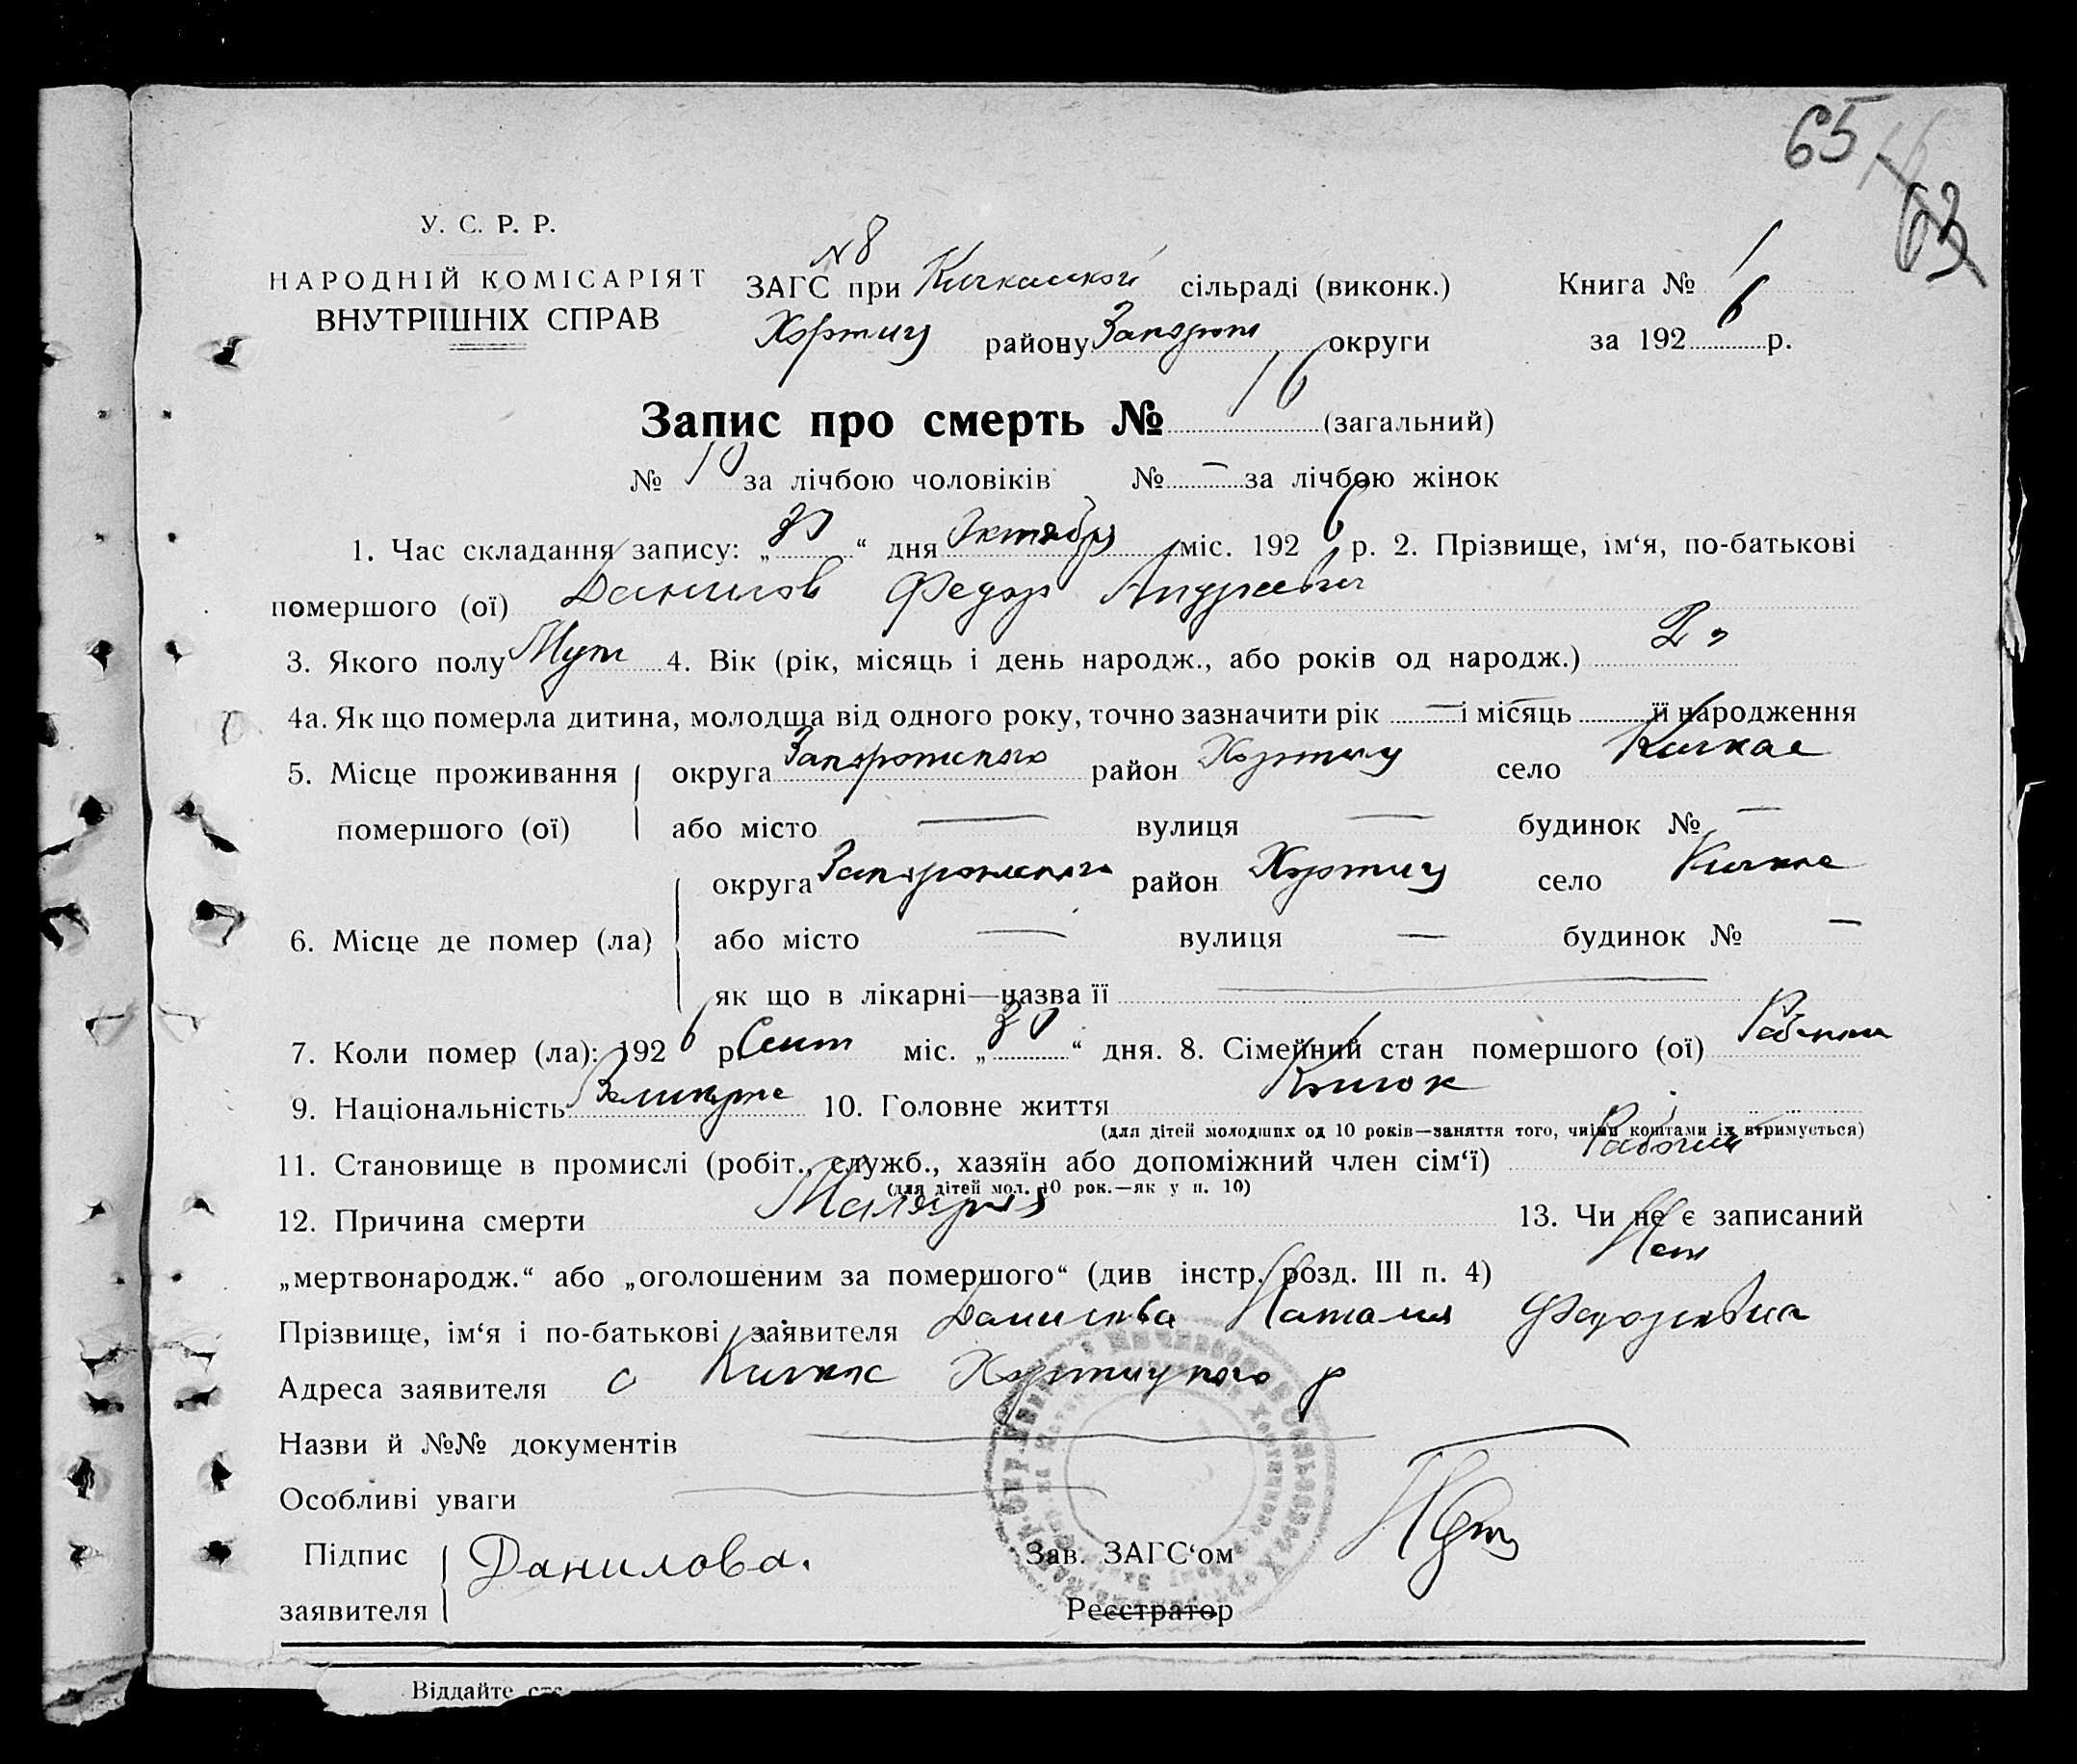 65
63
У. С. Р. Р.
НАРОДНІЙ КОМІСАРІЯТ
ВНУТРІШНІХ СПРАВ
N 8
ЗАГС при Кичкаской сільраді (виконк.)
Хортиц району Запорож округи
Книга № 1
за 192 6 р.
Запис про смерть № 16 (загальний)
№ 10 за лічбою чоловіків № — за лічбою жінок
1. Час складання запису: „ “ дня Октября міс. 192 6 р. 2. Прізвище, ім‘я, по-батькові
помершого (ої) Данилов Федор Андреевич
3. Якого полу Муж 4. Вік (рік, місяць і день народж., або років од народж.) 2
4а. Як що померла дитина, молодща від одного року, точно зазначити рік — і місяць — її народження
5. Місце проживання помершого (ої) округа Запорожского район Хортиц село Кичкас
або місто — вулиця — будинок № —
6. Місце де помер (ла) округа Запорожского район Хортиц село Кичкас
або місто — вулиця — будинок № —
як що в лікарні—назва її —
7. Коли помер (ла): 192 6 р. Сент міс. „30“ дня. 8. Сімейний стан помершого (ої)
9. Національність 10. Головне життя
(для дітей молодших од 10 років—заняття того, чиїми коштами їх втримується)
11. Становище в промислі (робіт., служб., хазяїн або допоміжний член сім‘ї) Рабочий
(для дітей мол. 10 рок.—як у п. 10)
12. Причина смерти Малярия 13. Чи не є записаний
„мертвонародж.“ або „оголошеним за помершого“ (див інстр. розд. III п. 4) Нет
Прізвище, ім‘я і по-батькові заявителя Данилова Наталия Федоровна
Адреса заявителя с Кичкас Хортицкого р
Назви й №№ документів —
Особливі уваги —
Підпис заявителя Данилова.
Зав. ЗАГС‘ом
Реєстратор
Віддайте